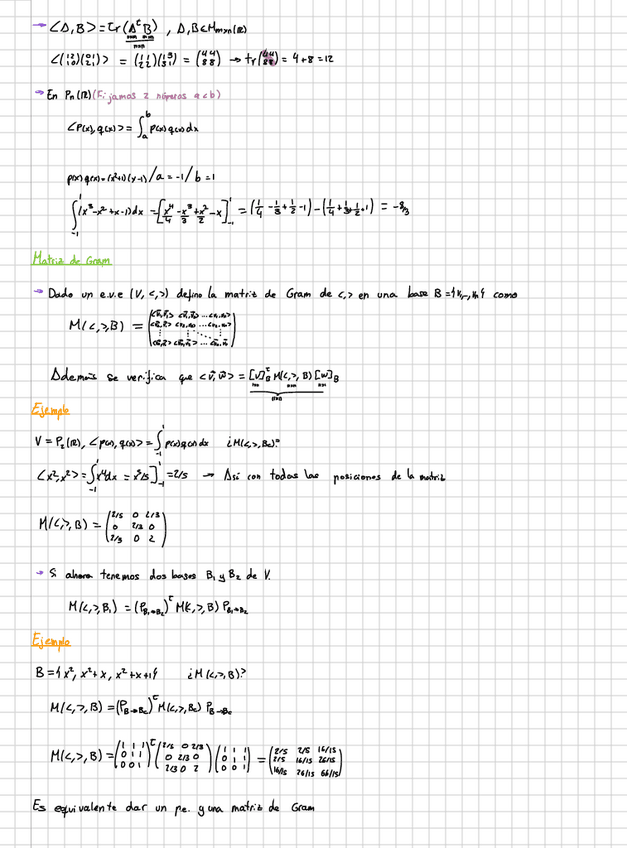 → <A,B> = tr(AᵗB) , A,B ∈ Mmxn(ℝ)
nxm mxn
nxn
<(1 2 / 1 0)(0 1 / 2 1)> = (1 1 / 2 2)(1 3 / 3 1) = (4 4 / 8 8) → tr(4 4 / 8 8) = 4+8 = 12
→ En Pn(ℝ) (Fijamos 2 números a<b)
<p(x), q(x)> = ∫ₐᵇ p(x)q(x)dx
p(x)q(x) = (x²+1)(x-1) / a = -1 / b = 1
∫₋₁¹ (x³-x²+x-1)dx = [x⁴/4 - x³/3 + x²/2 - x]₋₁¹ = (1/4 - 1/3 + 1/2 - 1) - (1/4 + 1/3 + 1/2 + 1) = -8/3
Matriz de Gram
→ Dado un e.v.e (V, <,>) defino la matriz de Gram de <,> en una base B = {v₁, ..., vn} como
M(<,>,B) =
Además se verifica que <v⃗,w⃗> = [v]ᵗB M(<,>,B) [w]B
Ejemplo
V = P₂(ℝ), <p(x), q(x)> = ∫₋₁¹ p(x)q(x)dx ¿M(<,>,Bc)?
<x²,x²> = ∫₋₁¹ x⁴dx = x⁵/5]₋₁¹ = 2/5 → Así con todas las posiciones de la matriz
M(<,>,B) = (2/5 0 2/3
0 2/3 0
2/3 0 2)
→ Si ahora tenemos dos bases B₁ y B₂ de V.
M(<,>,B₁) = (P B₁→B₂)ᵗ M(<,>,B) P B₁→B₂
Ejemplo
B = { x², x²+x, x²+x+1 } ¿M(<,>,B)?
M(<,>,B) = (P B→Bc)ᵗ M(<,>,Bc) P B→Bc
M(<,>,B) = (1 1 1 / 0 1 1 / 0 0 1)ᵗ (2/5 0 2/3 / 0 2/3 0 / 2/3 0 2) (1 1 1 / 0 1 1 / 0 0 1) = (2/5 2/5 16/15 / 2/5 16/15 26/15 / 16/15 26/15 66/15)
Es equivalente dar un p.e. y una matriz de Gram